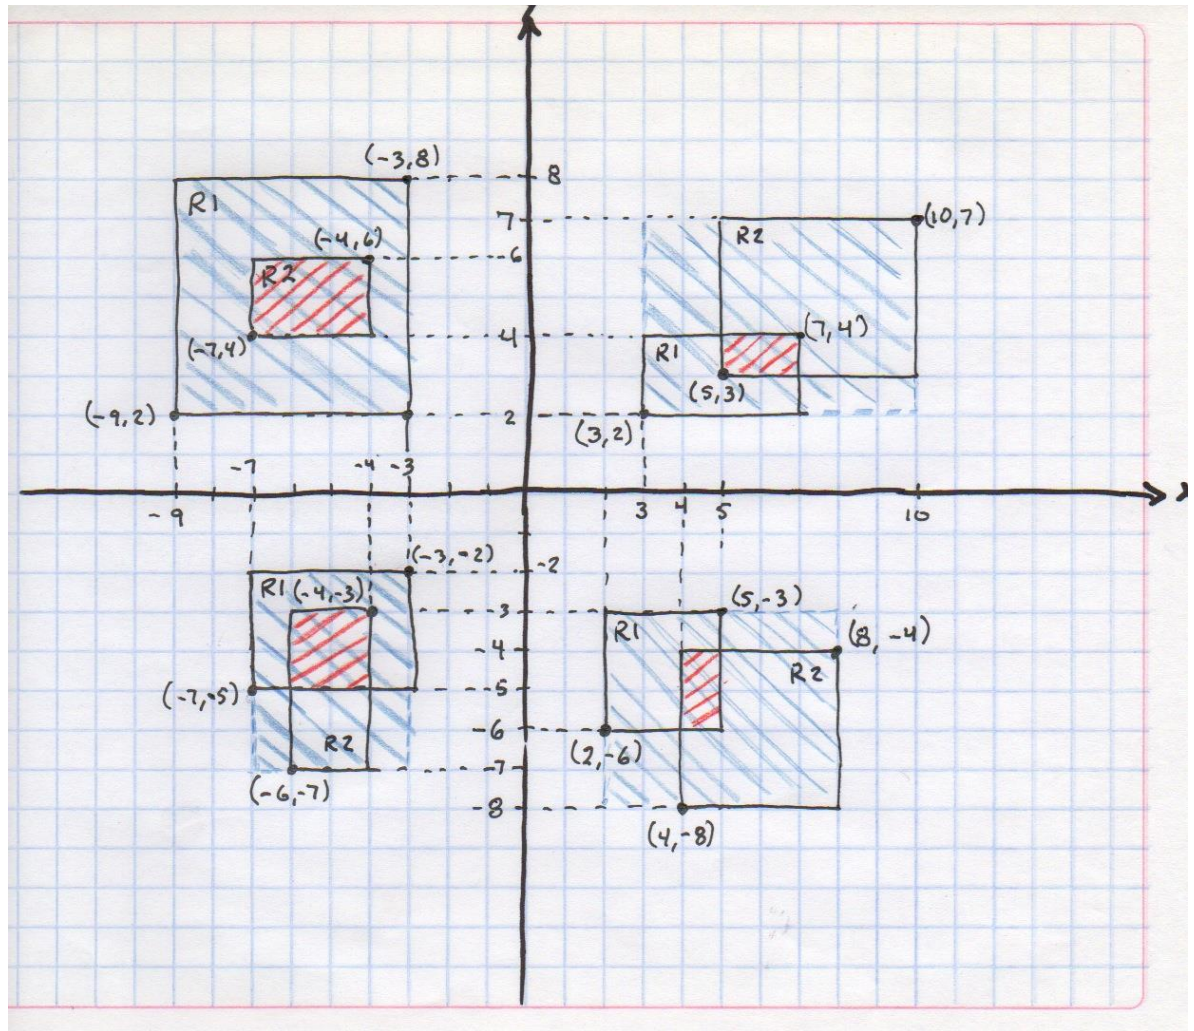 (-3,8)
8
R1
7
(10,7)
R2
(-4,6)
6
R2
(-7,4)
4
(7,4)
R1
(5,3)
(-9,2)
2
(3,2)
-7
-4
-3
-9
3
4
5
10
X
(-3,-2)
-2
R1
(-4,-3)
-3
(5,-3)
R1
(8,-4)
-4
R2
(-7,-5)
-5
-6
(2,-6)
R2
-7
(-6,-7)
-8
(4,-8)